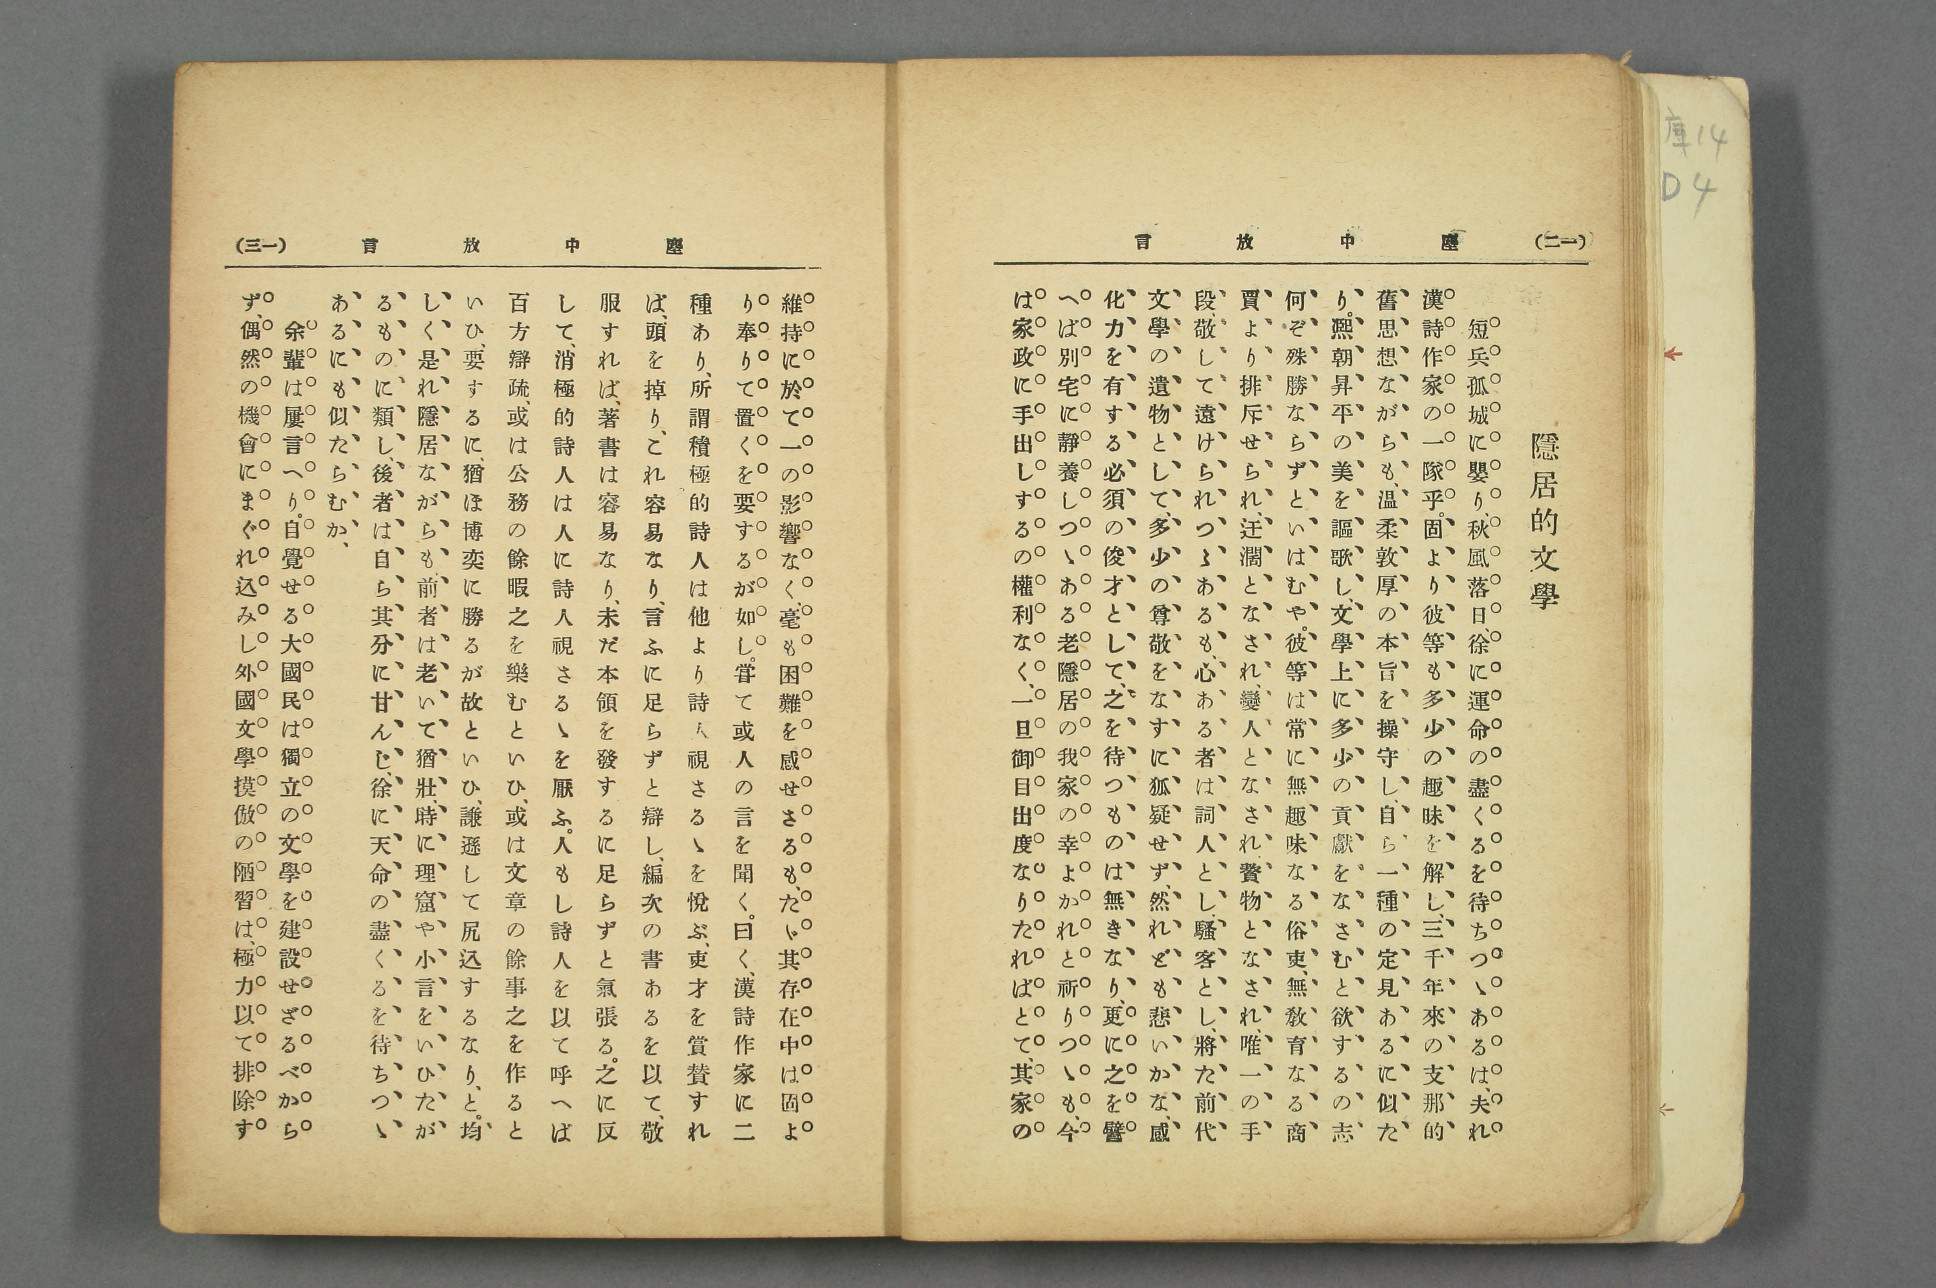 庫14
D4
(一二)
塵中放言
隱居的文學
短兵孤城に嬰り、秋風落日、徐に運命の盡くるを待ちつゝあるは、夫れ
漢詩作家の一隊乎。固より彼等も多少の趣味を解し、三千年來の支那的
舊思想ながらも、温柔敦厚の本旨を操守し、自ら一種の定見あるに似た
り。熙朝昇平の美を謳歌し、文學上に多少の貢獻をなさむと欲するの志
何ぞ殊勝ならずといはむや。彼等は常に無趣味なる俗吏、無教育なる商
賈より排斥せられ、迂濶となされ、變人となされ、贅物となされ、唯一の手
段、敬して遠けられつゝあるも、心ある者は詞人とし、騷客とし、將た前代
文學の遺物として、多少の尊敬をなすに狐疑せず、然れども悲いかな、感
化力を有する必須の俊才として、之を待つものは無きなり、更に之を譬
へば別宅に靜養しつゝある老隱居の我家の幸よかれと祈りつゝも、今
は家政に手出しするの權利なく、一旦御目出度なりたればとて、其家の
塵中放言
(一三)
維持に於て一の影響なく、毫も困難を感せさるも、たゞ其存在中は固よ
り奉りて置くを要するが如し。甞て或人の言を聞く。曰く、漢詩作家に二
種あり、所謂積極的詩人は他より詩人視さるゝを悅ぶ、吏才を賞賛すれ
ば、頭を掉り、これ容易なり、言ふに足らずと辯し、編次の書あるを以て、敬
服すれば、著書は容易なり、未だ本領を發するに足らずと氣張る。之に反
して、消極的詩人は人に詩人視さるゝを厭ふ。人もし詩人を以て呼へば
百方辯疏、或は公務の餘暇之を樂むといひ、或は文章の餘事之を作ると
いひ、要するに、猶ほ博奕に勝るが故といひ、謙遜して尻込するなり、と。均
しく是れ隱居ながらも、前者は老いて猶壯、時に理窟や小言をいひたが
るものに類し、後者は自ら其分に甘んじ、徐に天命の盡くるを待ちつゝ
あるにも似たらむか、
余輩は屢言へり。自覺せる大國民は獨立の文學を建設せざるべから
ず、偶然の機會にまぐれ込みし外國文學摸倣の陋習は、極力以て排除す